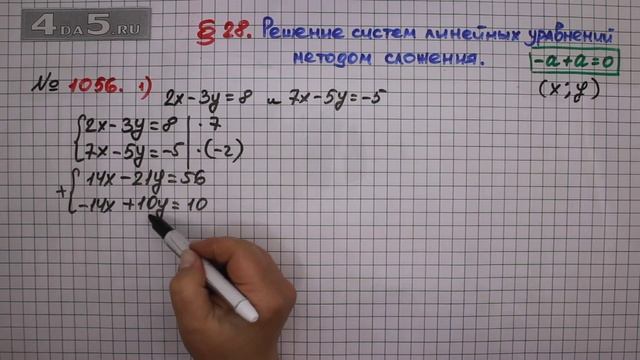 4DA5.RU
§ 28. Решение систем линейных уравнений
методом сложения.
-a+a=0
№ 1056. 1)
2x-3y=8 и 7x-5y=-5
(x;y)
2x-3y=8 | ·7
7x-5y=-5 | ·(-2)
+ 14x-21y=56
-14x+10y=10